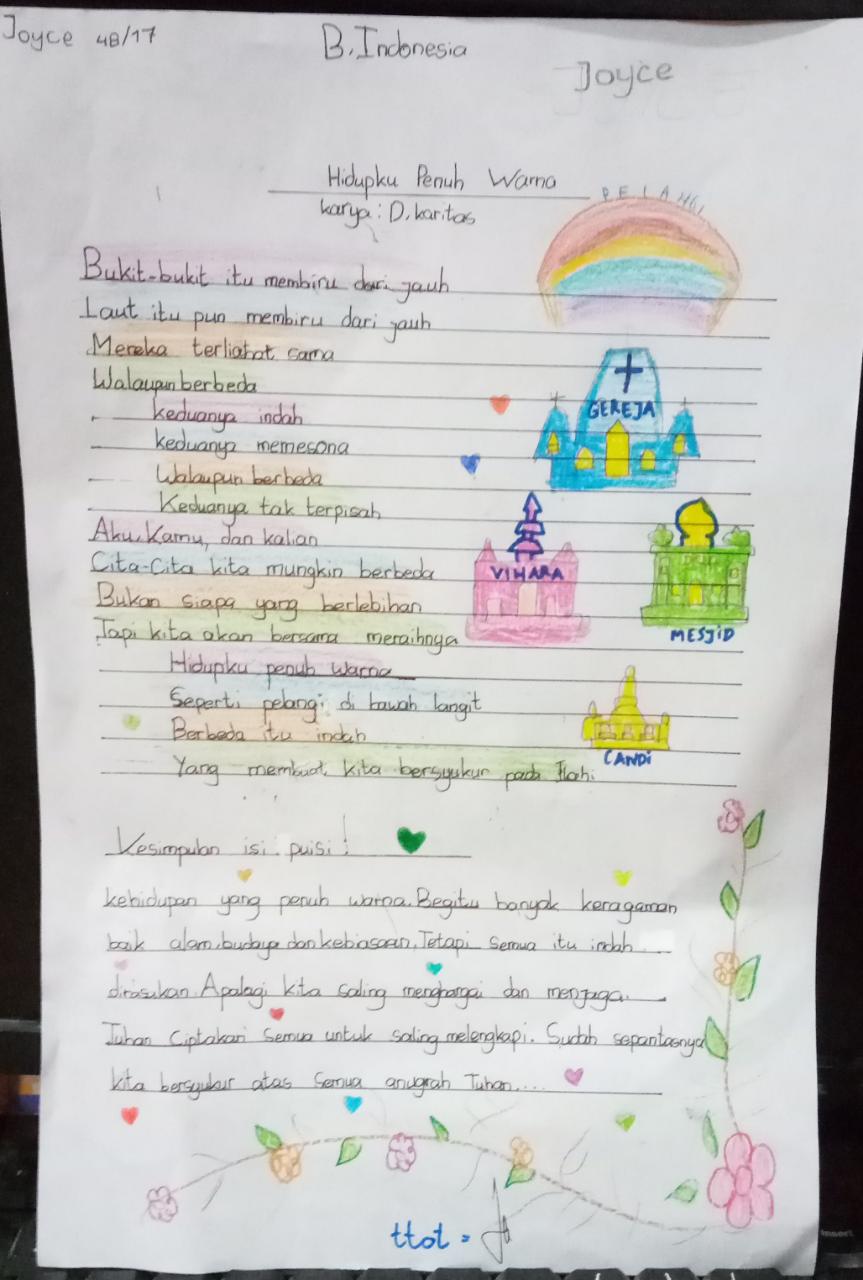 Joyce 4B/17
B. Indonesia
Joyce
Hidupku Penuh Warna
karya : D. karitas
PELANGI
Bukit-bukit itu membiru dari jauh
Laut itu pun membiru dari jauh
Mereka terliahat sama
Walaupun berbeda
keduanya indah
keduanya memesona
Walaupun berbeda
Keduanya tak terpisah
Aku, Kamu, dan kalian
Cita-Cita kita mungkin berbeda
Bukan siapa yang berlebihan
Tapi kita akan bersama meraihnya
Hidupku penuh warna
Seperti pelangi di bawah langit
Berbeda itu indah
Yang membuat kita bersyukur pada Ilahi
GEREJA
VIHARA
MESJiD
CANDi
Kesimpulan isi puisi!
kehidupan yang penuh warna. Begitu banyak keragaman
baik alam, budaya dan kebiasaan, Tetapi semua itu indah
dirasakan. Apalagi kita saling menghargai dan menjaga.
Tuhan Ciptakan Semua untuk saling melengkapi. Sudah sepantasnya
kita bersyukur atas Semua anugrah Tuhan....
ttd =